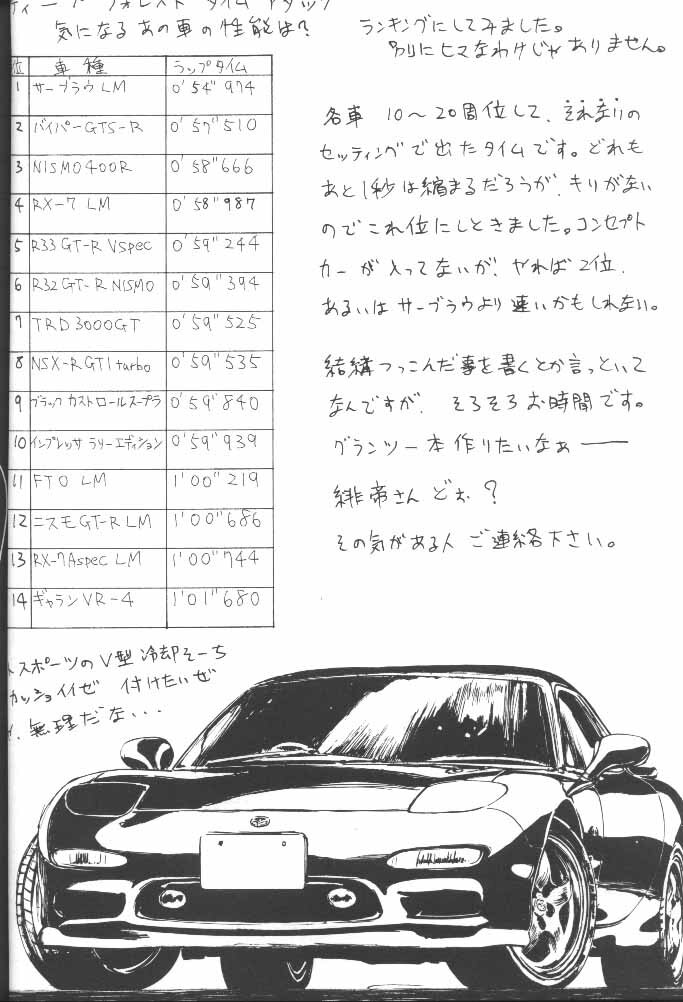 ディープ フォレスト タイム アタック
気になる あの車の性能は?
ランキングにしてみました。
別にヒマなわけじゃありません。
位 車種 ラップタイム
1 サーブラウLM 0'54"974
2 バイパーGTS-R 0'57"510
3 NISMO400R 0'58"666
4 RX-7 LM 0'58"987
5 R33 GT-R Vspec 0'59"244
6 R32 GT-R NISMO 0'59"394
7 TRD3000GT 0'59"525
8 NSX-RGT1turbo 0'59"535
9 ブラックカストロールスープラ 0'59"840
10 インプレッサ ラリーエディション 0'59"939
11 FTO LM 1'00"219
12 ニスモGT-R LM 1'00"686
13 RX-7Aspec LM 1'00"744
14 ギャランVR-4 1'01"680
各車 10〜20周位して、それなりの
セッティングで出たタイムです。どれも
あと1秒は縮まるだろうが、キリがない
のでこれ位にしときました。コンセプト
カーが入ってないが、やれば2位、
あるいはサーブラウより速いかもしれない。
結構つっこんだ事を書くとか言っといて
なんですが、そろそろお時間です。
グランツー本作りたいなぁ──
緋帝さんどお?
その気がある人 ご連絡下さい。
スポーツのV型冷却そーち
カッショイイぜ 付けたいぜ
無理だな...